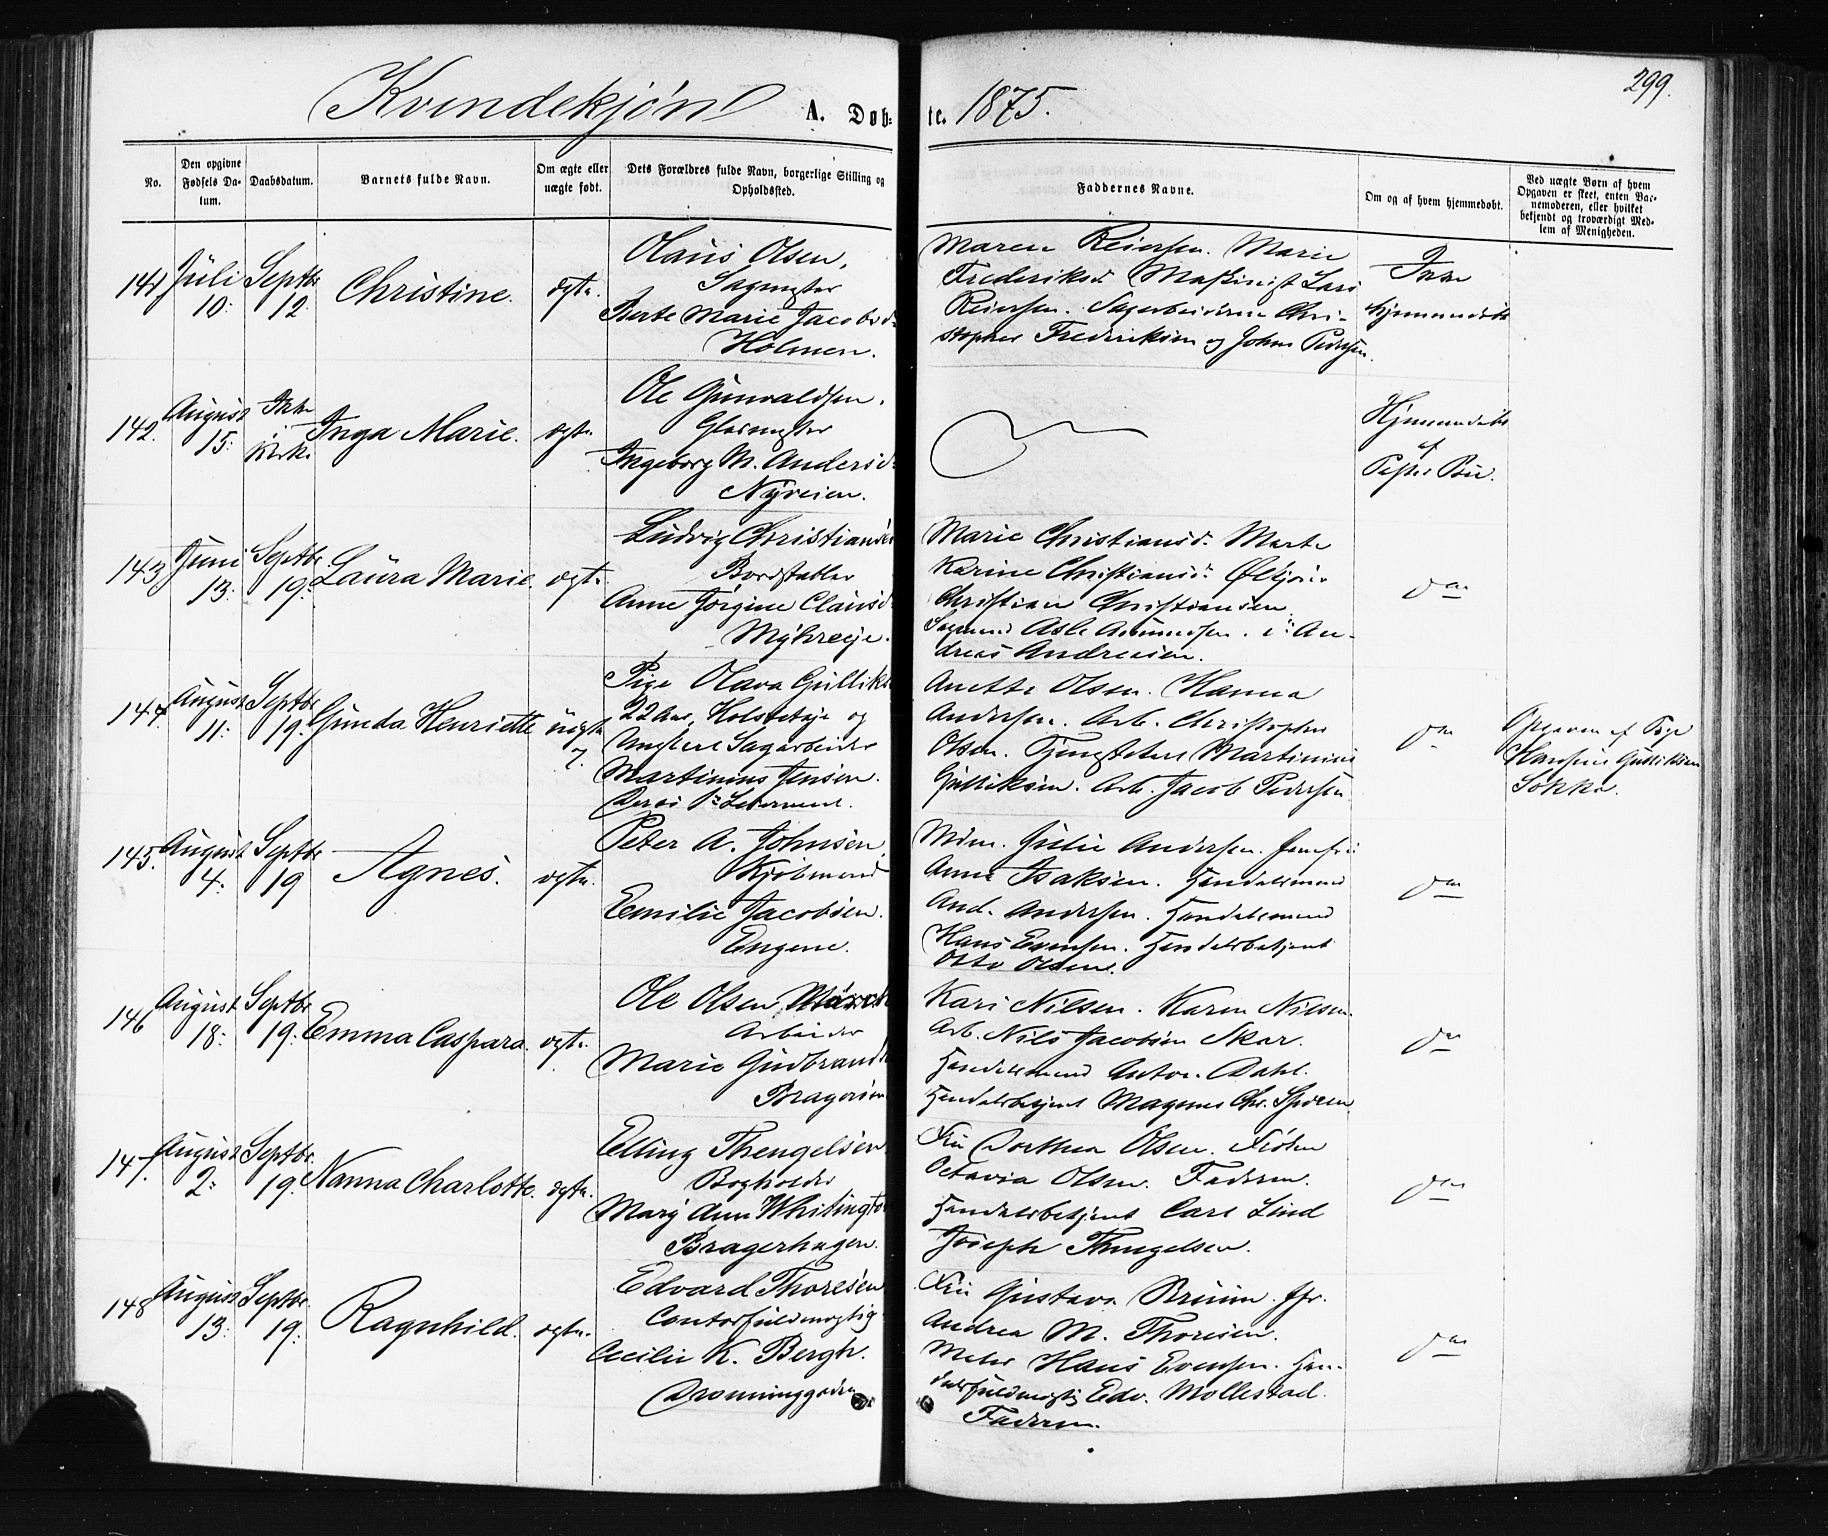 299.
Kvindekjøn A. Døb-te. 1875.
No.
Den opgivne Fødsels Da-tum.
Daabsdatum.
Barnets fulde Navn.
Om ægte eller uægte født.
Dets Forældres fulde Navn, borgerlige Stilling og Opholdssted.
Faddernes Navne.
Om og af hvem hjemmedøbt.
Ved uægte Børn af hvem Opgaven er skeet, enten Bar-nemoderen, eller hvilket bekjendt og troværdigt Med-lem af Menigheden.
141
Juli 10:
Septbr 12
Christine.
ægte.
Olaus Olsen,
Sagmester
Berte Marie Jacobsd.
Holmen.
Maren Reiersen. Marie
Frederiksd. Maskinist Lars
Reiersen. Sagarbeiderne Chri-
stopher Frederiksen og Johns Pedersen.
Ikke
hjemmedøbt
142.
August 15:
Ikke i Kirke
Inga Marie.
ægte
Ole Gunvaldsen.
Glasmester
Ingeborg M. Andersd.
Nyveien.
Hjemmedøbt
af
Pastor Bu.
143
Juni 13:
Septbr 19:
Laura Marie.
ægte.
Ludvig Christiansen
Bordstabler
Anne Jørgine Clausd.
Myhreeje.
Marie Christiansd. Marte
Karine Christiansd.
Christian Christiansen.
Asle An-
dreas Andreasen.
do
144.
August 11:
Septbr 19:
Gunda Henriette
uægte
Pige Olava Gulliks
22 Aar, og
Ungkarl Sagarbeider
Martinius Jensen.
Deres 1ste Leiermaal.
Anette Olsen. Hanna
Andersen. Arb. Christopher
Olsen. Martinius
Gulliksen. Arb. Jacob Pedersen
do
Opgaven af Pige
Gulliksen
145.
August 4:
Septbr 19
Agnes.
ægte.
Peter A. Johnsen,
Kjøbmand
Emilie Jacobsen.
Engene.
Mdm. Julie Andersen. Jomfru
Anna Isaksen. Handelsmand
And. Andersen. Handelsmand
Hans Evensen. Handelsbetjent
Otto Olsen.
do
146
August 18:
Septbr 19:
Emma Caspara.
ægte.
Ole Olsen
Arbeider
Marie Gudbrands
Bragerøen
Kari Nilsen. Karen Nilsen.
Arb. Nils Jacobsen Skar.
Handelsmand Anton Dahl.
Handelsbetjent Magnus Chr.
do
147.
August 2:
Septbr. 19.
Nanna Charlotte.
ægte.
Elling Thengelsen
Bogholder
Mary Ann Whitington
Bragerhagen.
Fru Dorthea Olsen. Frøken
Octavia Olsen. Faderen.
Handelsbetjent Carl Lind
Joseph Thengelsen.
do
148
August 13:
Septbr. 19.
Ragnhild.
ægte.
Edvard Thoresen
Contorfuldmægtig
Cecilie K. Bergh.
Dronninggaden
Fru Gustava Bruun. Jfr.
Andrea M. Thoresen.
Hans Evensen. Han-
delsfuldmægtig Edv. Mollestad.
Faderen.
do